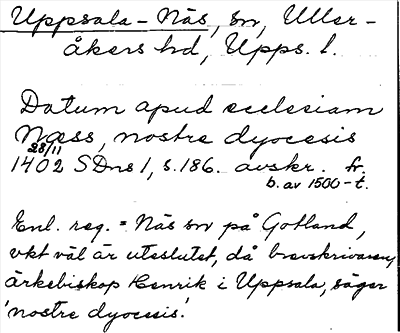 Uppsala-Näs, sn, Uller-
åkers hd, Upps. l.
Datum apud ecclesiam
Næss, nostre dyocesis
28/11
1402 SDns 1, s. 186. avskr. fr.
b. av 1500-t.
Enl. reg. = Näs sn på Gotland,
vkt väl är uteslutet, då brevskrivaren,
ärkebiskop Henrik i Uppsala, säger
'nostre dyocesis'.